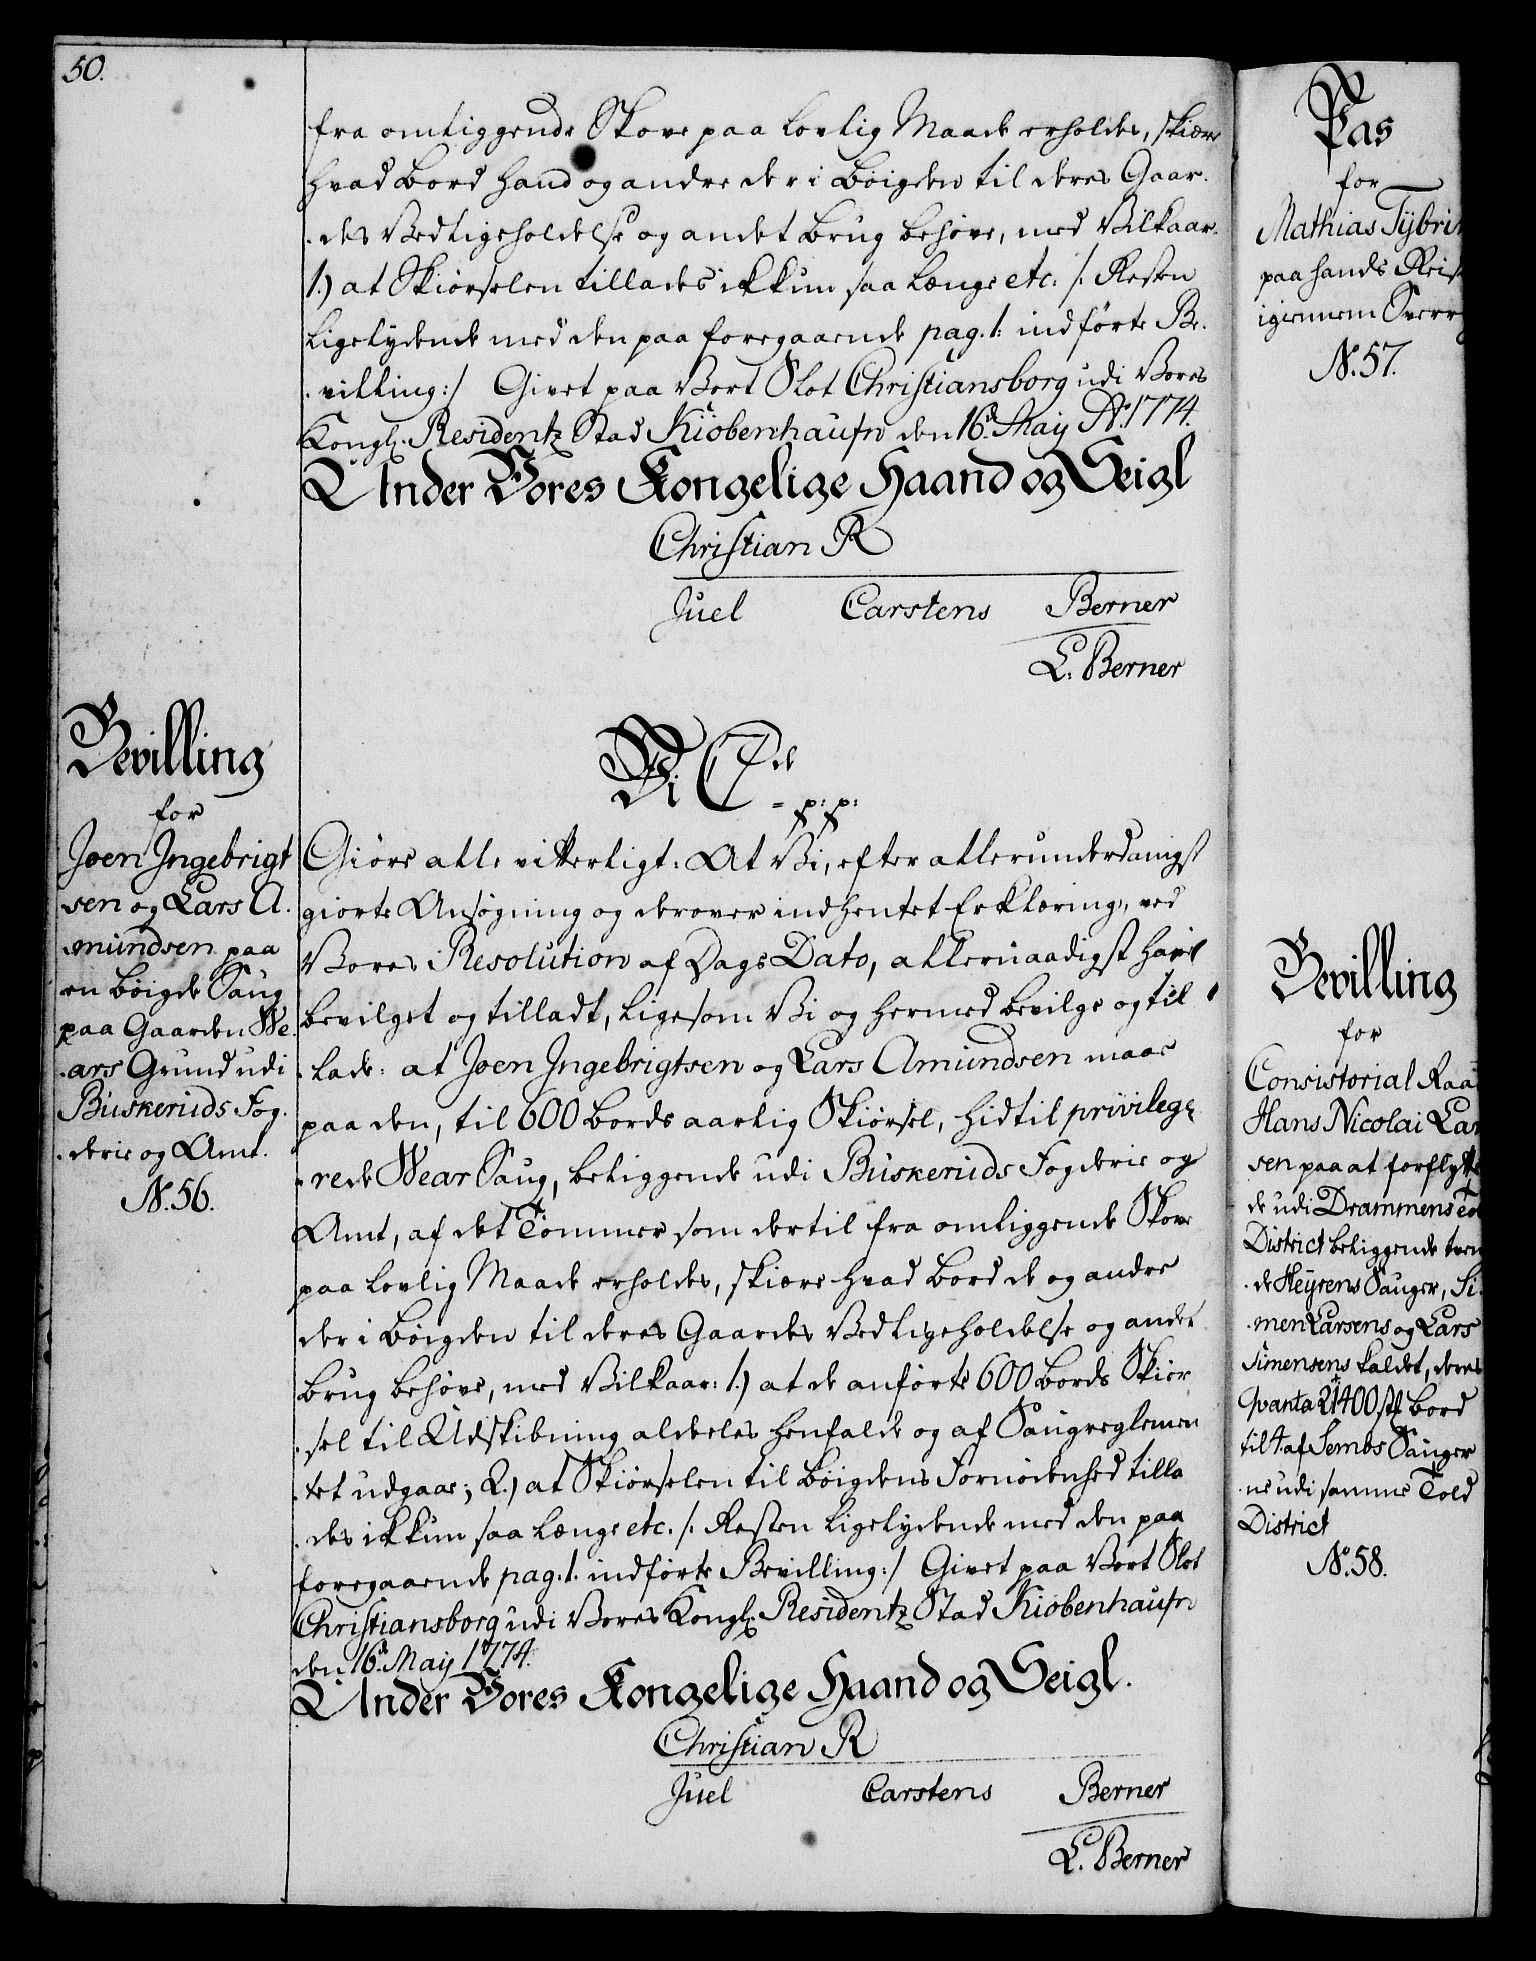 50.
fra omliggende Skove paa lovlig Maade erholdes, skiære
hvad Bord hand og andre der i Bøigden til deres Gaar-
-des Vedligeholdelse og andet Brug behøve, med Vilkaar:
1.) at Skiørselen tillades ikkun saa længe etc. /: Resten
ligelydende med den paa foregaaende pag. 1: indførte Be-
-villing :/ Givet paa Vort Slot Christiansborg udi Vores
Kongl. Residentz Stad Kiöbenhaufn den 16.d May Ao. 1774.
Under Vores Kongelige Haand og Seigl
Christian R
Juel Carstens Berner
L. Berner
Bevilling
for
Joen Ingebrigt
sen og Lars A-
-mundsen paa
en Bøigde Saug
paa Gaarden We-
-ars Grund udi
Buskeruds Fog-
-derie og Amt.
No. 56.
Vi C 7de
= p: p:
Giøre alle vitterligt: At Vi, efter allerunderdanigst
giorte Ansøgning og derover indhentet Erklæring, ved
Vores Resolution af Dags Dato, allernaadigst have
bevilget og tilladt, ligesom Vi og hermed bevilge og til
-lade: at Joen Ingebrigtsen og Lars Amundsen maae
paa den, til 600 Bords aarlig Skiørsel, hidtil privilege
-rede Wear Saug, beliggende udi Buskeruds Fogderie og
Amt, af det Tømmer som dertil fra omliggende Skove
paa lovlig Maade erholdes, skiære hvad Bord de og andre
der i Bøigden til deres Gaardes Vedligeholdelse og andet
Brug behøve, med Vilkaar: 1.) at de anførte 600 Bords Skiør
-sel til Udskibning aldeeles henfalde og af Saugreglemen
-tet udgaae; 2.) at Skiørselen til Bøigdens Fornødenhed tilla
-des ikkun saa længe etc. /: Resten ligelydende med den paa
foregaaende pag. 1. indførte Bevilling :/ Givet paa Vort Slot
Christiansborg udi Vores Kongl. Residentz Stad Kiöbenhaufn
den 16.d May 1774.
Under Vores Kongelige Haand og Seigl.
Christian R
Juel Carstens Berner
L. Berner
Pas
for
Mathias Tybri
paa hands Reise
igiennem Sverrig
No. 57.
Bevilling
for
Consistorial Raa
Hans Nicolai Lar
sen paa at forflytte
de udi Drammens To
District beliggende tven
-de Heyrens Sauger, Si-
-men Larsens og Lars
Simensens kaldet, deres
Qvanta 21400 st. Bord
til 4 af Sembs Sauger
-ne udi samme Told
District
No. 58.